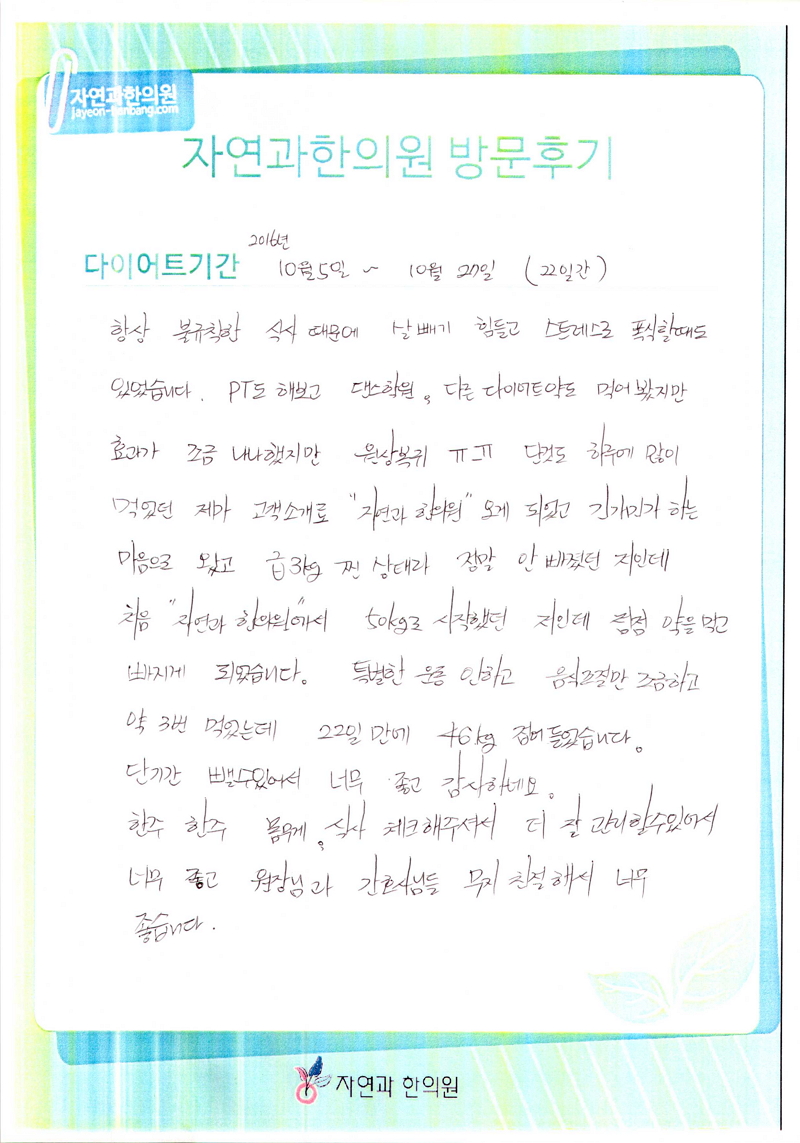 자연과한의원
jayeon-hanbang.com
자연과한의원 방문후기
2016년
다이어트기간 10월5일 ~ 10월 27일 (22일간)
항상 불규칙한 식사 때문에 살 빼기 힘들고 스트레스로 폭식할때도
있었습니다. PT도 해보고 댄스학원, 다른 다이어트약도 먹어 봤지만
효과가 조금 나나했지만 원상복귀 ㅠㅠ 단것도 하루에 많이
먹었던 제가 고객소개로 "자연과 한의원" 오게 되었고 긴가민가 하는
마음으로 왔고 급3kg 찐 상태라 정말 안 빠졌던 저인데
처음 "자연과 한의원"에서 50kg로 시작했던 저인데 점점 약을 먹고
빠지게 되었습니다. 특별한 운동 안하고 음식조절만 조금하고
약 3번 먹었는데 22일 만에 46kg 접어들었습니다.
단기간 뺄수있어서 너무 좋고 감사하네요.
한주 한주 몸무게, 식사 체크해주셔서 더 잘 관리할수있어서
너무 좋고 원장님과 간호사님들 무지 친절해서 너무
좋습니다.
자연과 한의원